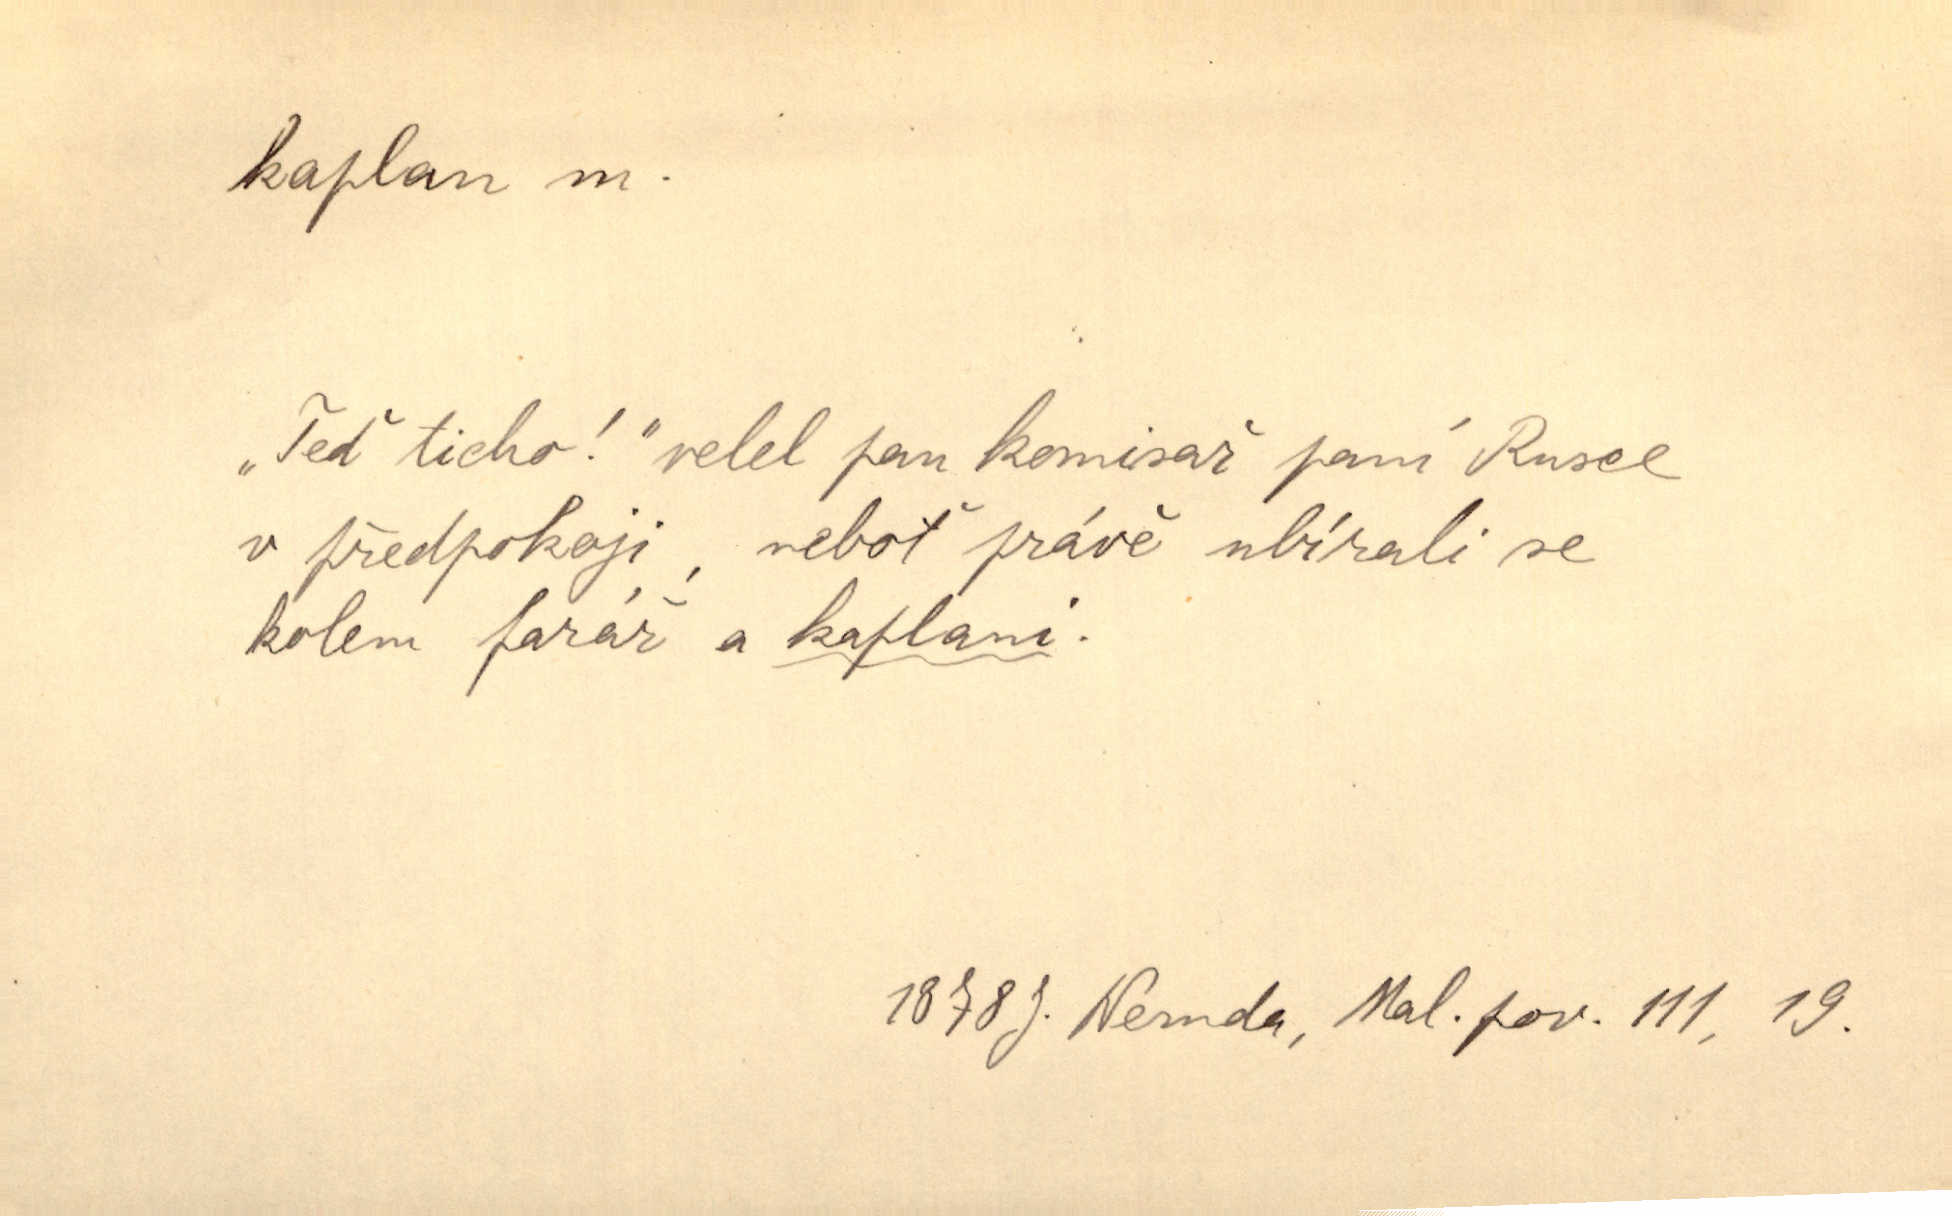 kaplan m.
„Teď ticho!" velel pan komisař paní Rusce
v předpokoji, neboť právě ubírali se
kolem farář a kaplani.
1878 J. Neruda, Mal. pov. 111, 19.